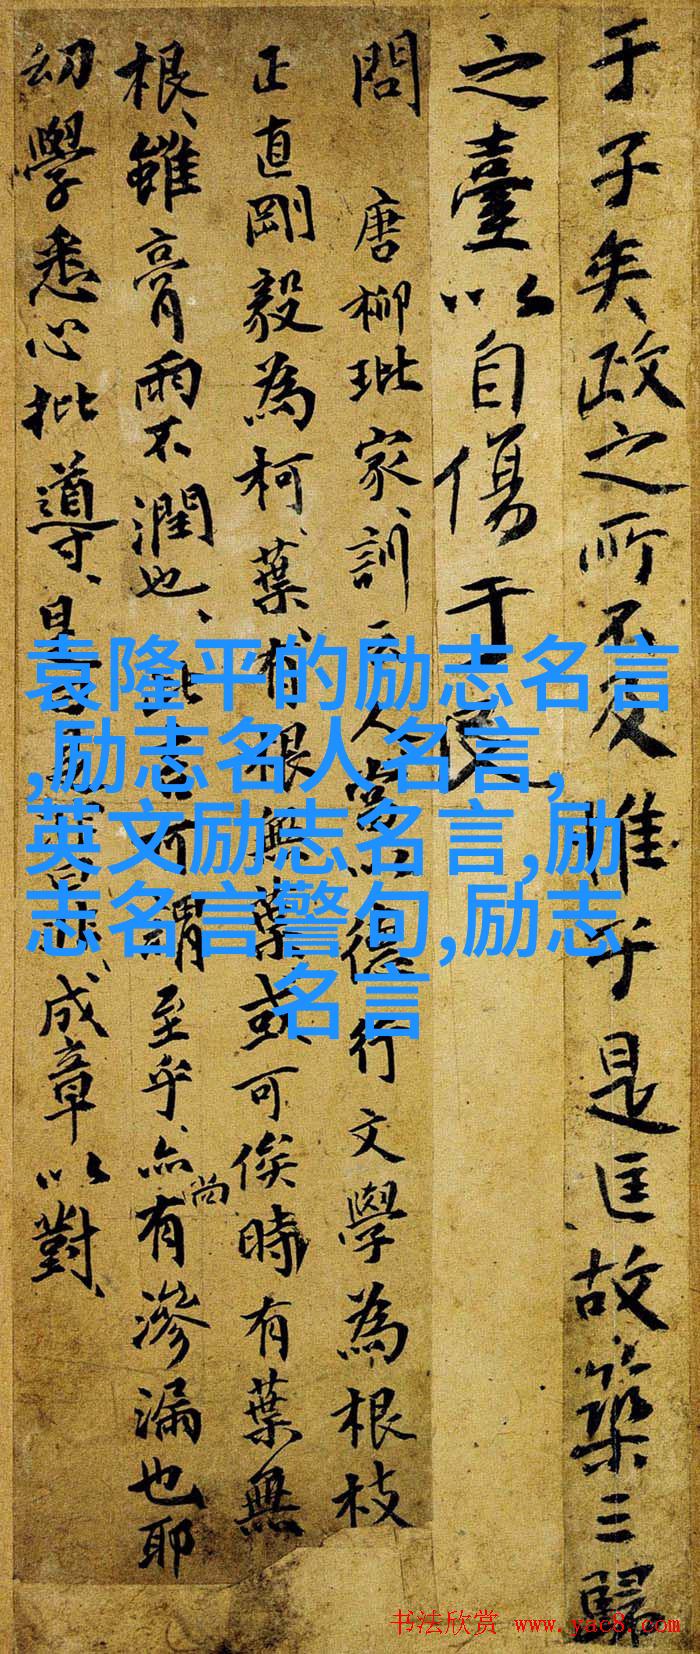 于子矣政之所不及惟乎是匡故築三歸
之臺以自傷于民
問 唐柳玭家訓至人當以德行文學為根枝
正直剛毅為柯葉有根無葉或可俟時有葉無
根雖膏雨不潤也此言可謂至乎亦有滲漏也耶
尚
幼學悉心批導成章以對
袁隆平的励志名言
,励志名人名言,
英文励志名言,励
志名言警句,励志
名言
书法欣赏 www.yac8.com